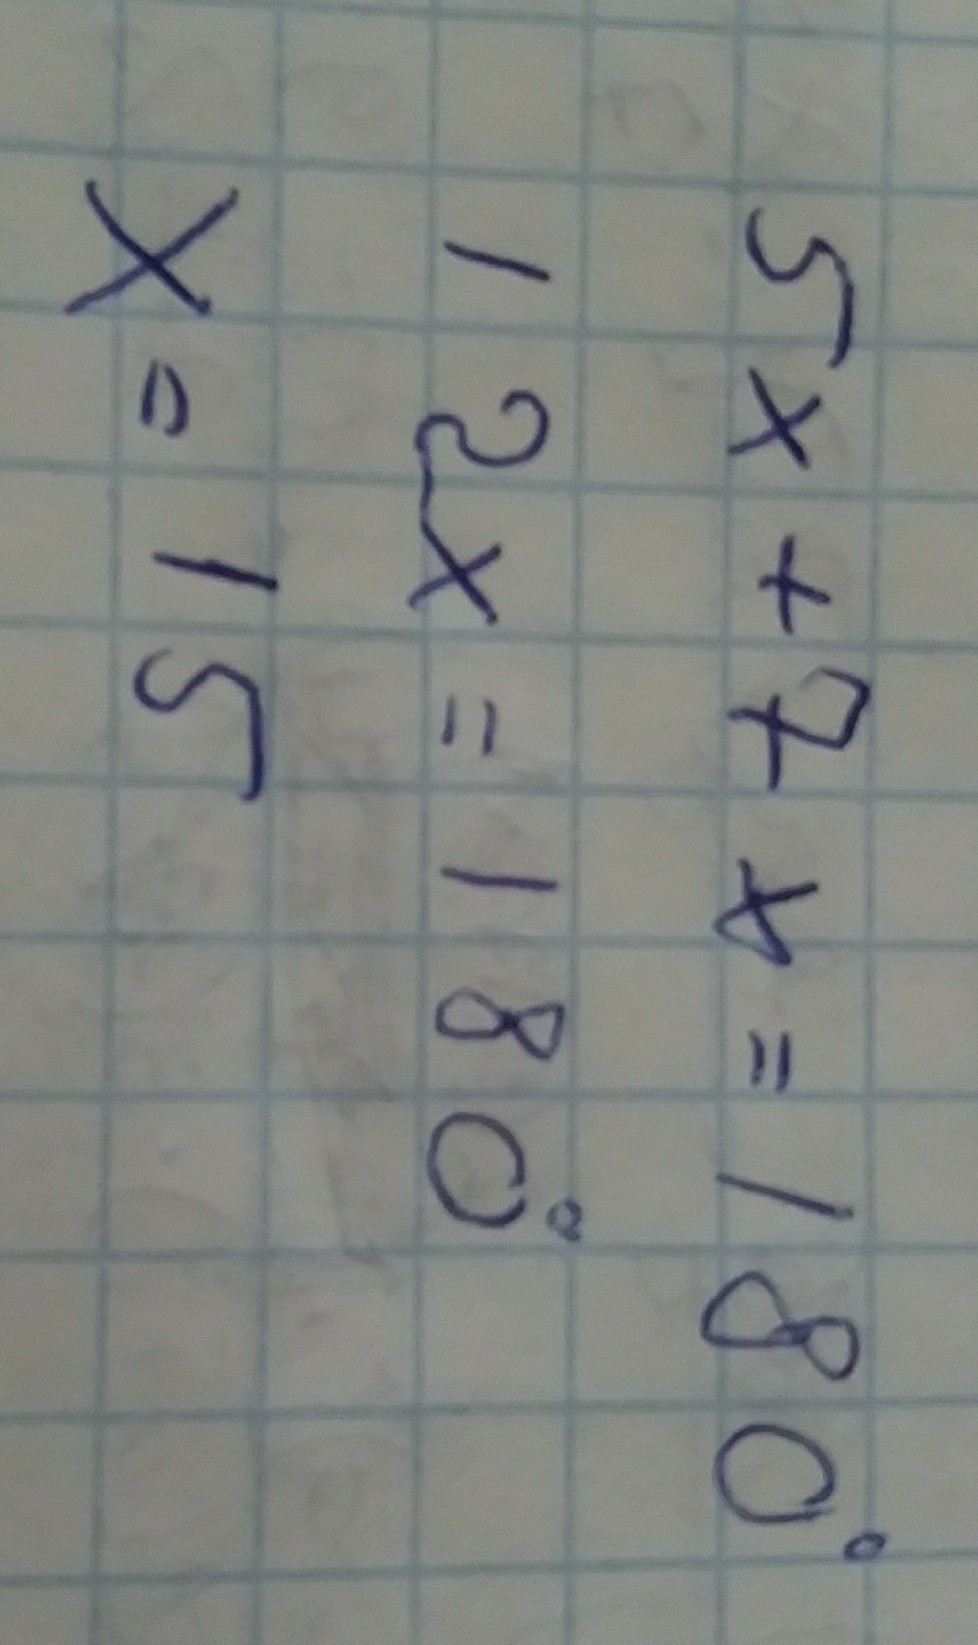 5x+7x=180°
12x=180°
x=15